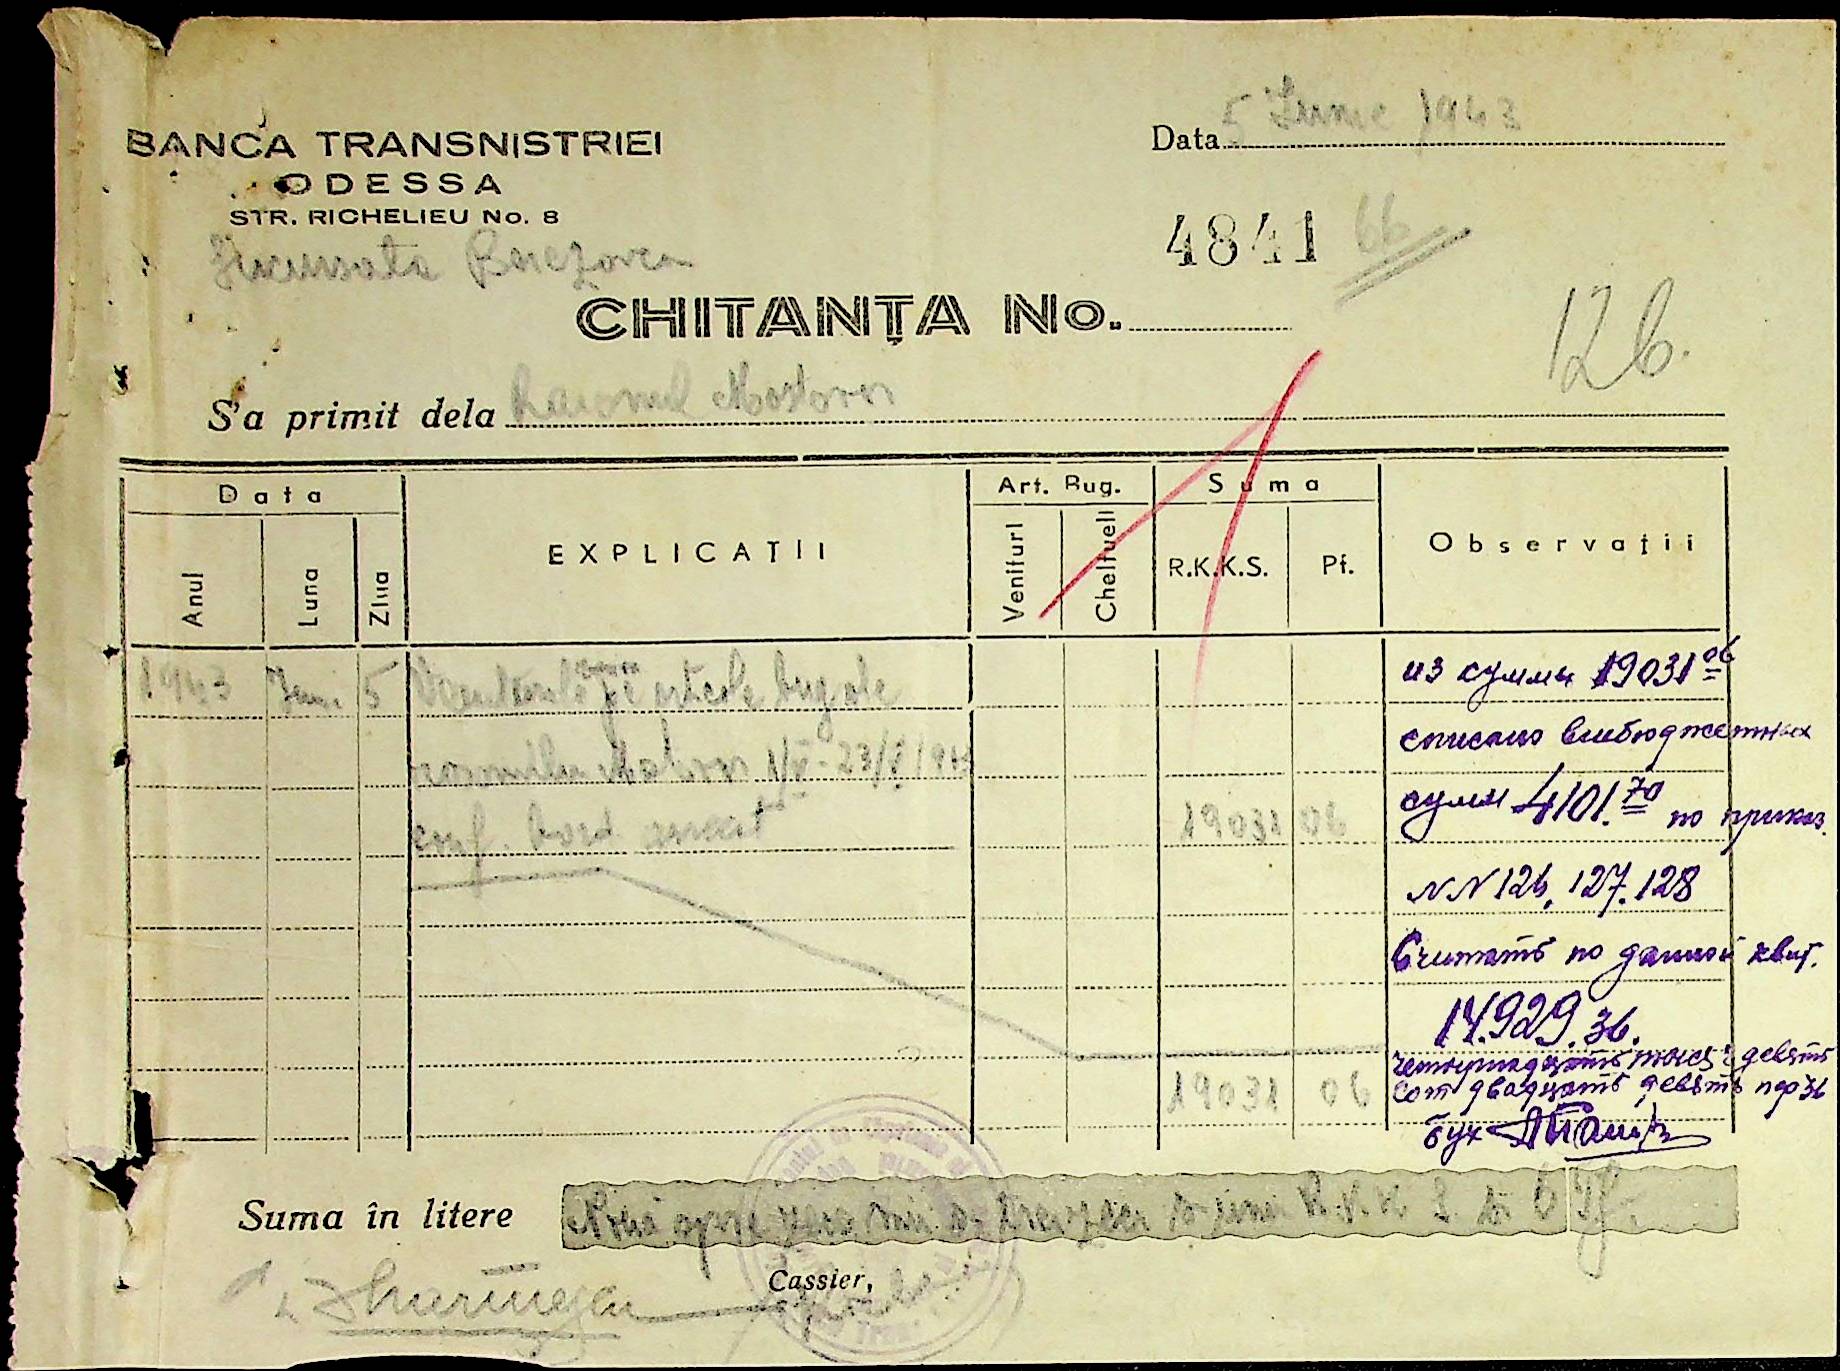 BANCA TRANSNISTRIEI
ODESSA
STR. RICHELIEU No. 8
Sucursala Berezovca
Data 5 Iunie 1943
4841 66
CHITANȚA No.
126.
S'a primit dela Raionul Mostovoi
Data Art. Bug. Suma
Anul Luna Ziua EXPLICAȚII Venituri Cheltueli R.K.K.S. Pf. Observații
1943 Juni 5 pe articole bugetale
из суммы 19031 06
Mostovoi 1/V - 23/V 1943
списано внебюджетных
conf. bord. anexat 19031 06
сумм 4101.70 по приказ.
NN 126, 127. 128
Считать по данной квит.
14.929.36.
четырнадцать тысяч девять
19031 06
сот двадцать девять пф 36
бух
Suma în litere
Cassier,